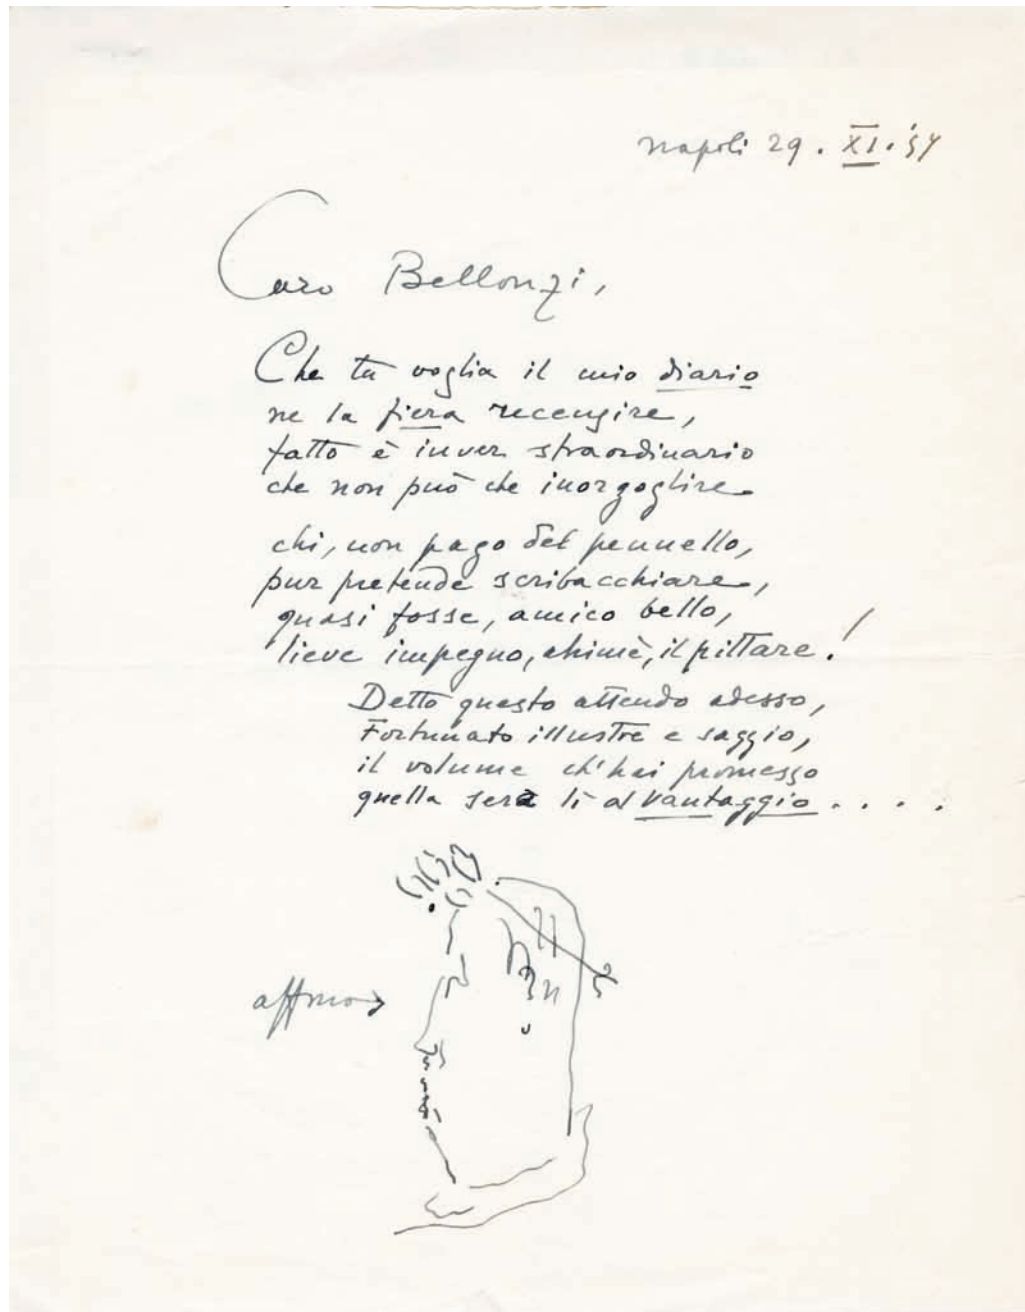 Napoli 29. XI. '54
Caro Bellonzi,
Che tu voglia il mio diario
ne la fiera recensire,
fatto è inver straordinario
che non può che inorgoglire
chi, non pago del pennello,
pur pretende scribacchiare,
quasi fosse, amico bello,
lieve impegno, ahimè, il pittare!
Detto questo attendo adesso,
Fortunato illustre e saggio,
il volume ch'hai promesso
quella sera lì al Vantaggio . . . .
affmo